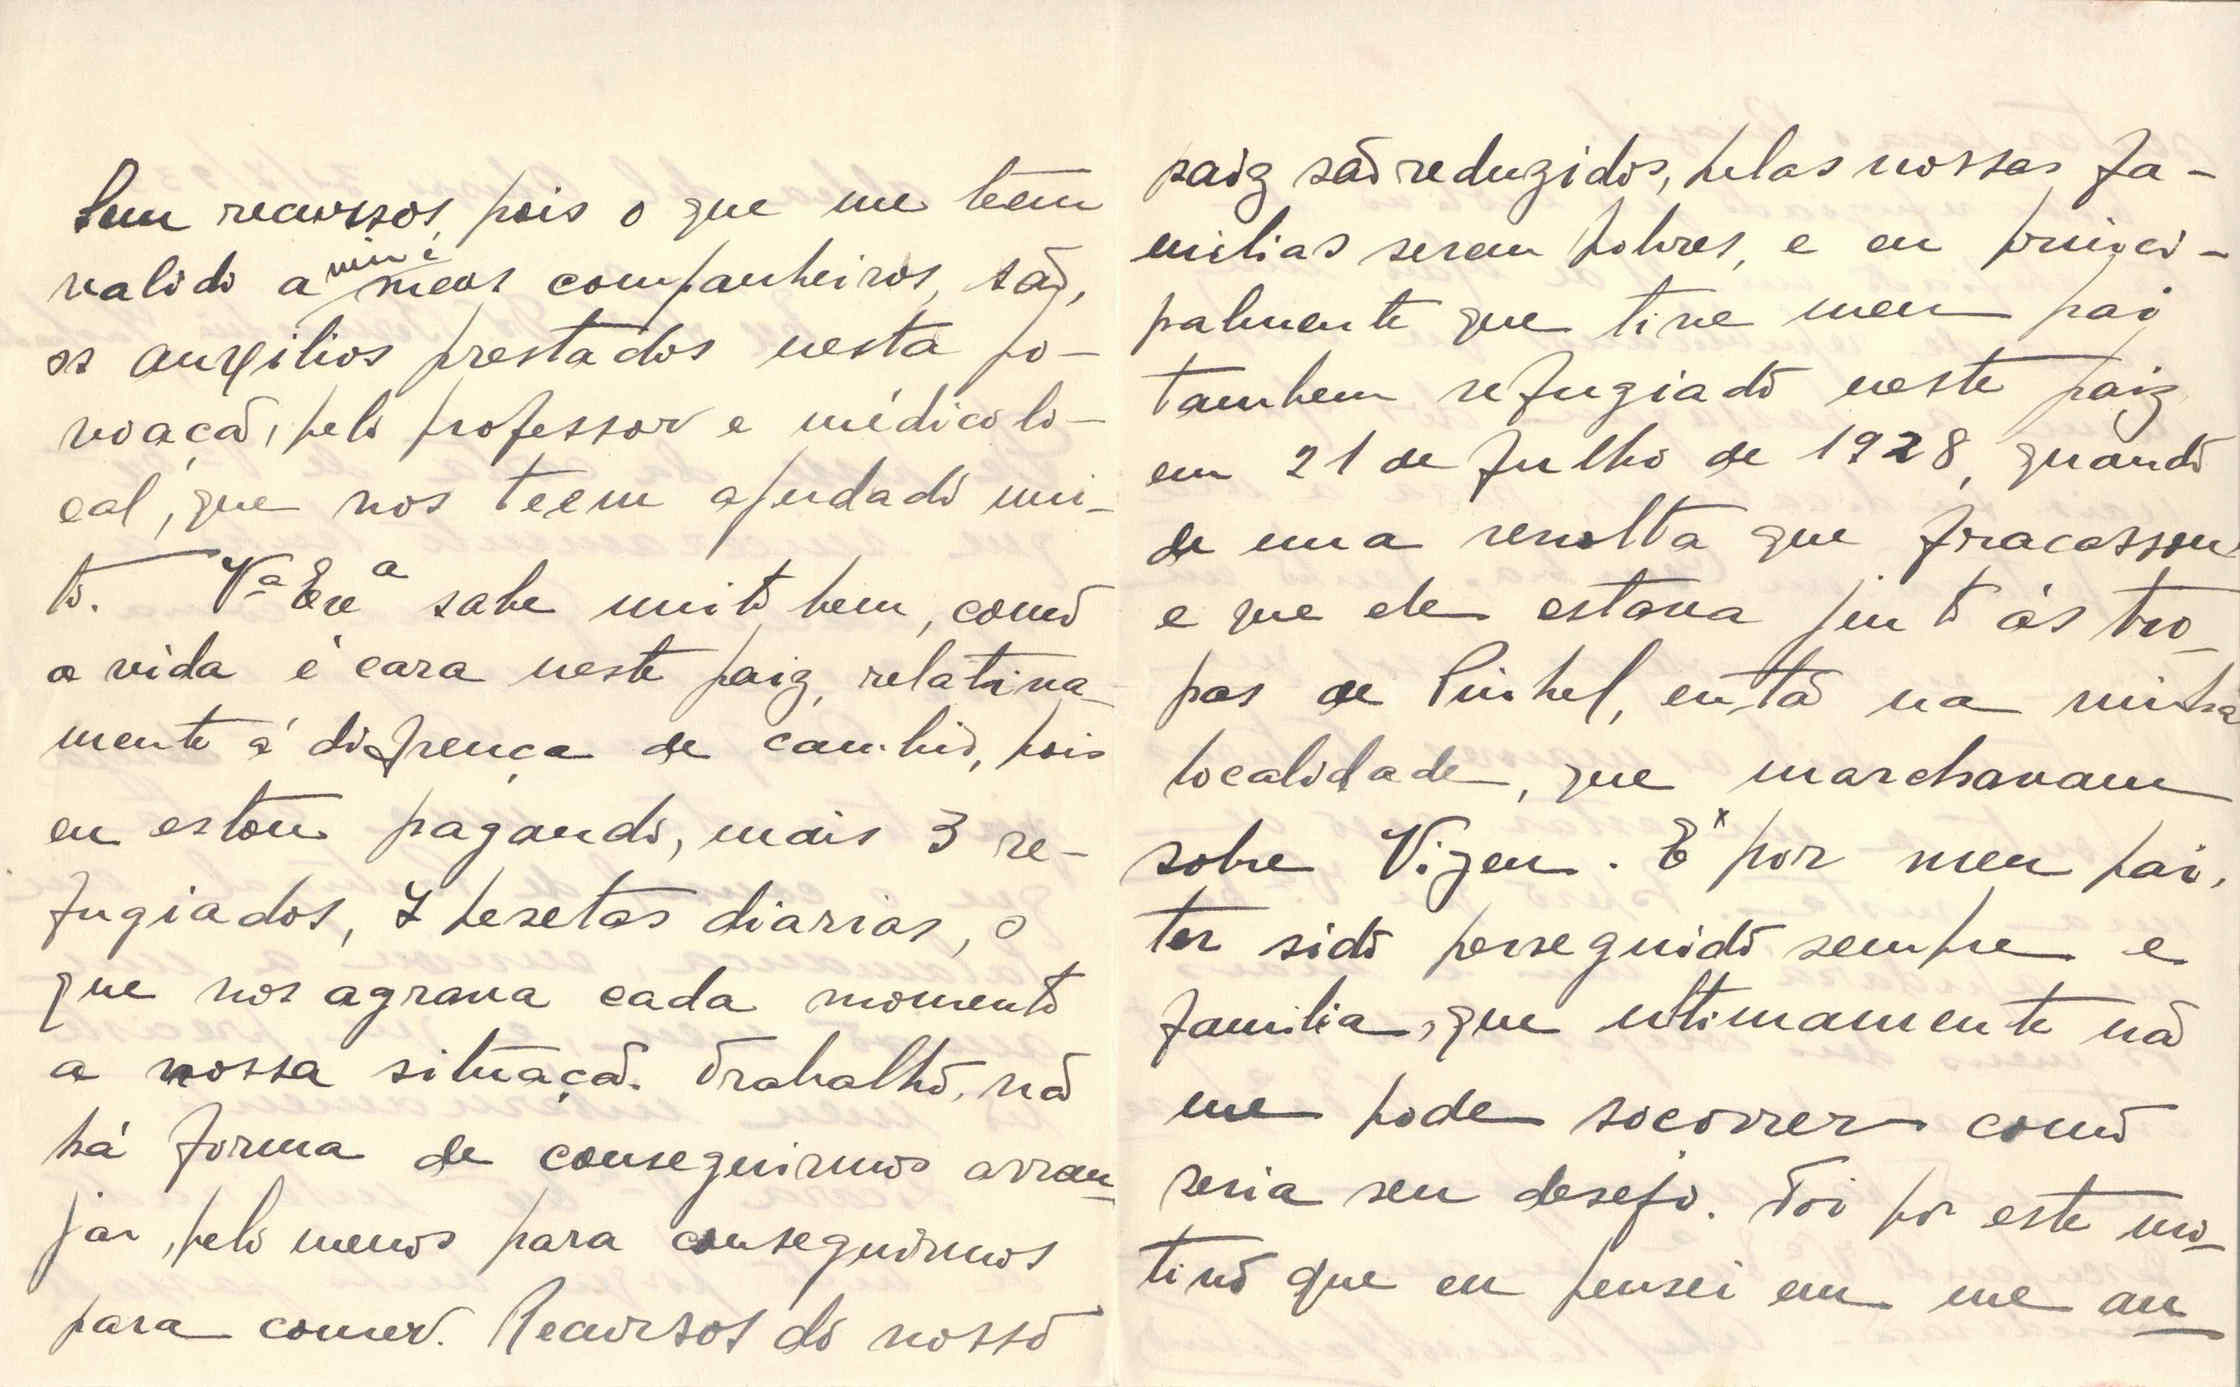 Sem recursos, pois o que me teem
valido a mim i meos companheiros, são,
os auxilios prestados nesta po-
voação, pelo professor e médico lo-
cal, que nos teem ajudado mui-
to. Vª Exª sabe muito bem, como
a vida é cara neste paiz, relativa-
mente á difrença de cambio, pois
eu estou pagando, mais 3 re-
fugiados, 7 pesetas diarias, o
que nos agrava cada momento
a nossa situação. Trabalho, não
há forma de conseguirmos arran-
jar, pelo menos para conseguirmos
para comer. Recursos do nosso
paiz são reduzidos, pelas nossas fa-
milias serem pobres, e eu princi-
palmente que tive meu pai
tambem refugiado neste paiz
em 21 de Julho de 1928, quando
de uma revolta que fracassou
e que ele estava junto ás tro-
pas de Pinhel, então na minha
localidade, que marchavam
sobre Vizeu. E por meu pai,
ter sido perseguido sempre e
familia, que ultimamente não
me pode socorrer como
seria seu desejo. Foi por este mo-
tivo que eu pensei em me au